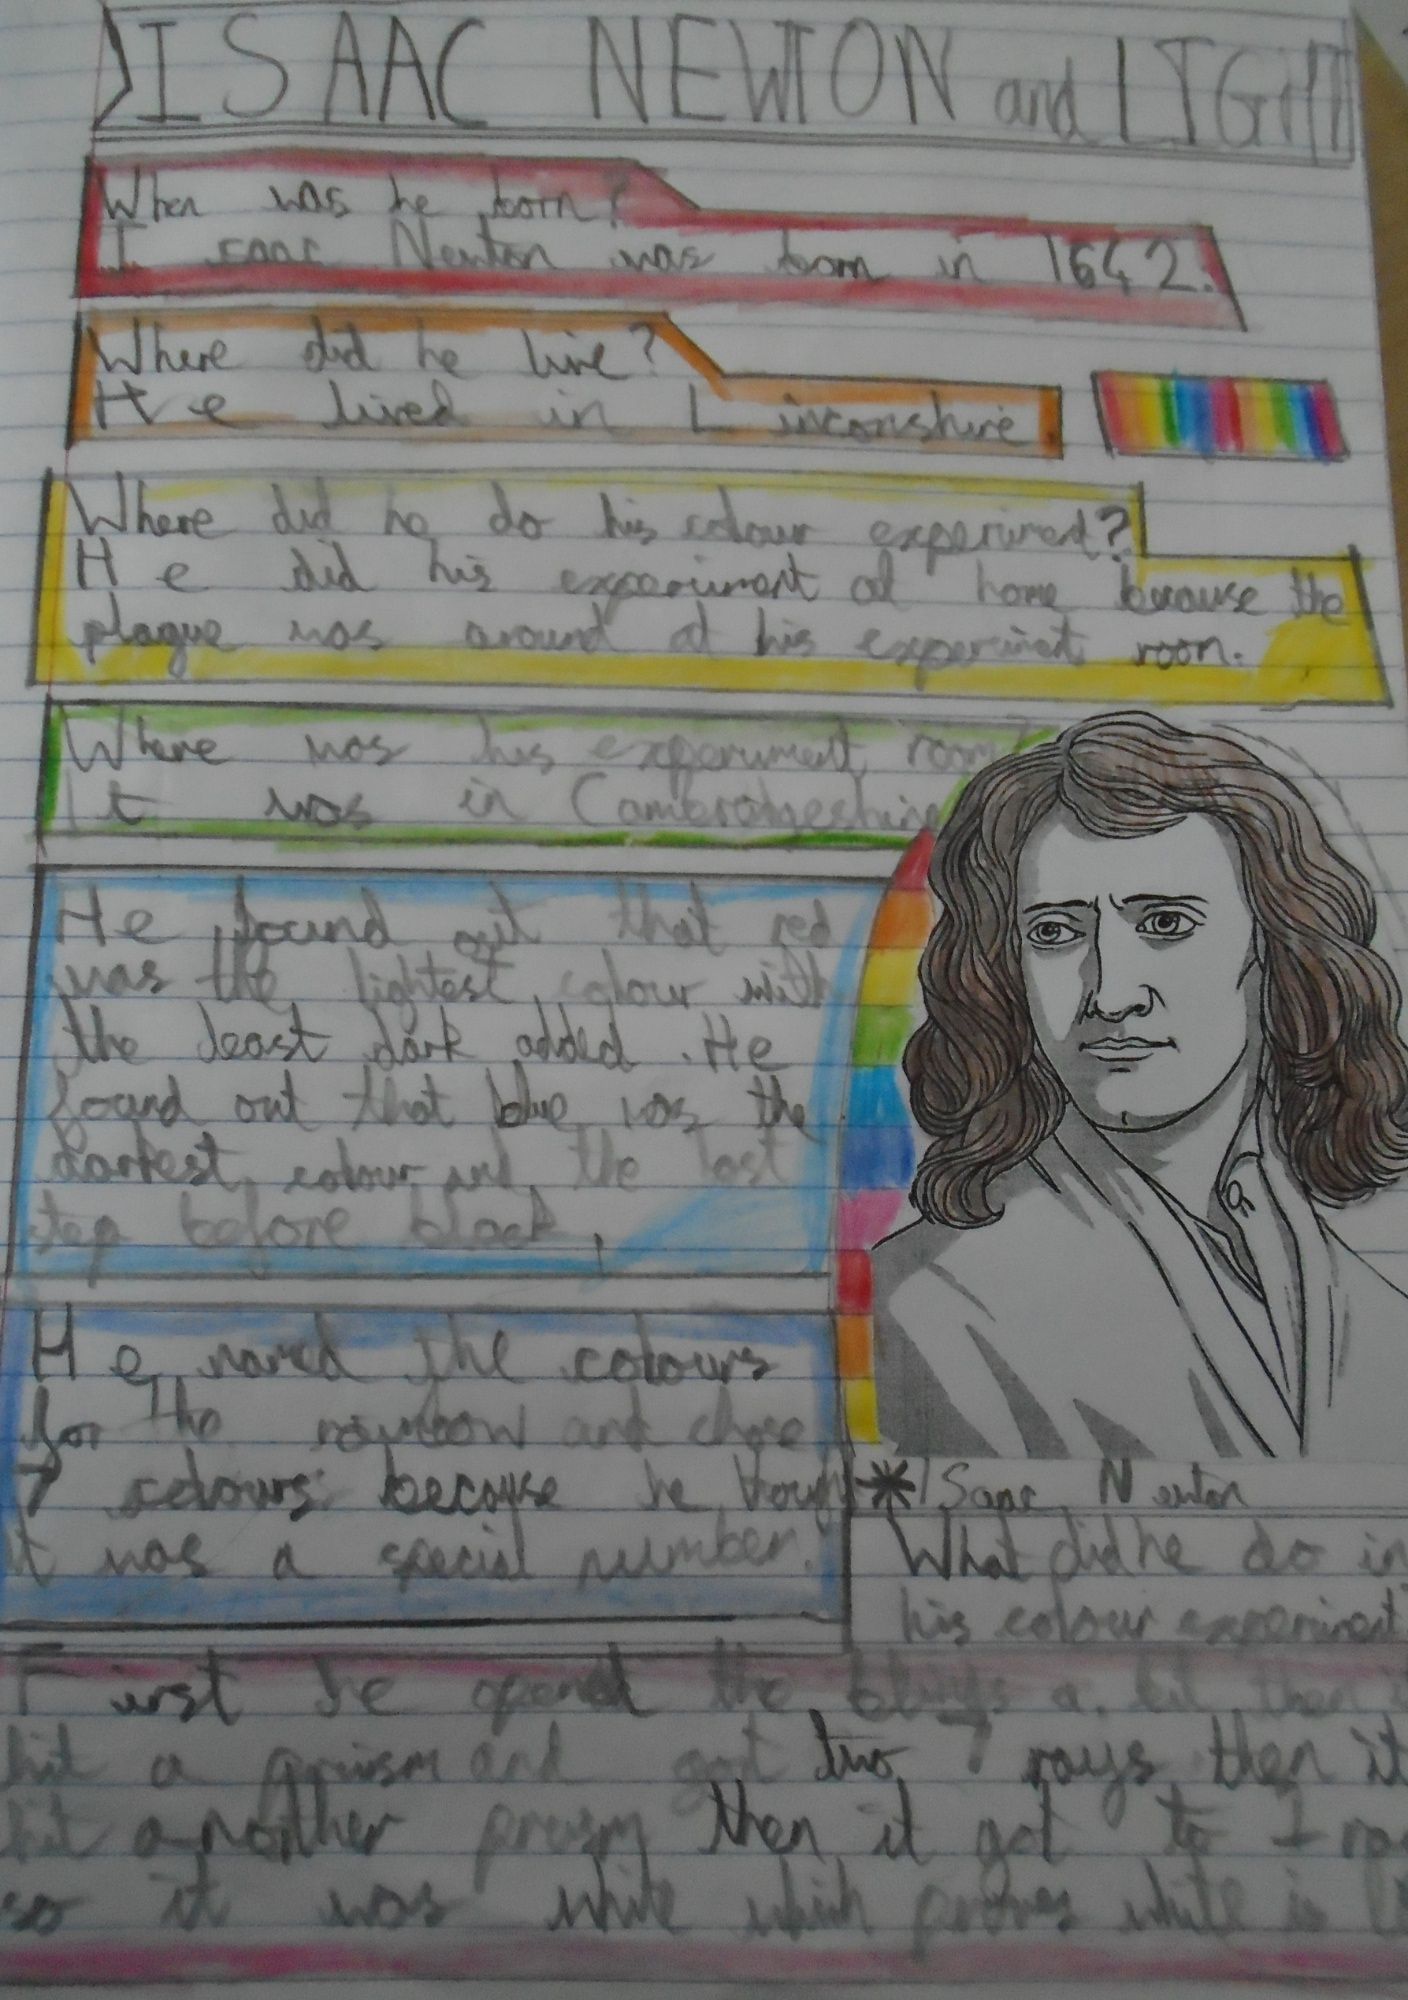 ISAAC NEWTON and LIGHT
When was he born?
Isaac Newton was born in 1642.
Where did he live?
He lived in Linconshire.
Where did he do his colour experiment?
He did his experiment at home because the
plague was around at his experiment room.
Where was his experiment room?
It was in Cambridgeshire
He found out that red
was the lightest colour with
the least dark added. He
found out that blue was the
darkest colour and the last
step before black.
He named the colours
for the and chose
7 colours because he
it was a special number.
*Isaac Newton
What did he do in
his colour experiment
First he opened the a bit then
hit a and got two 7 rays then it
hit another then it got to 1
so it was white which proves white is